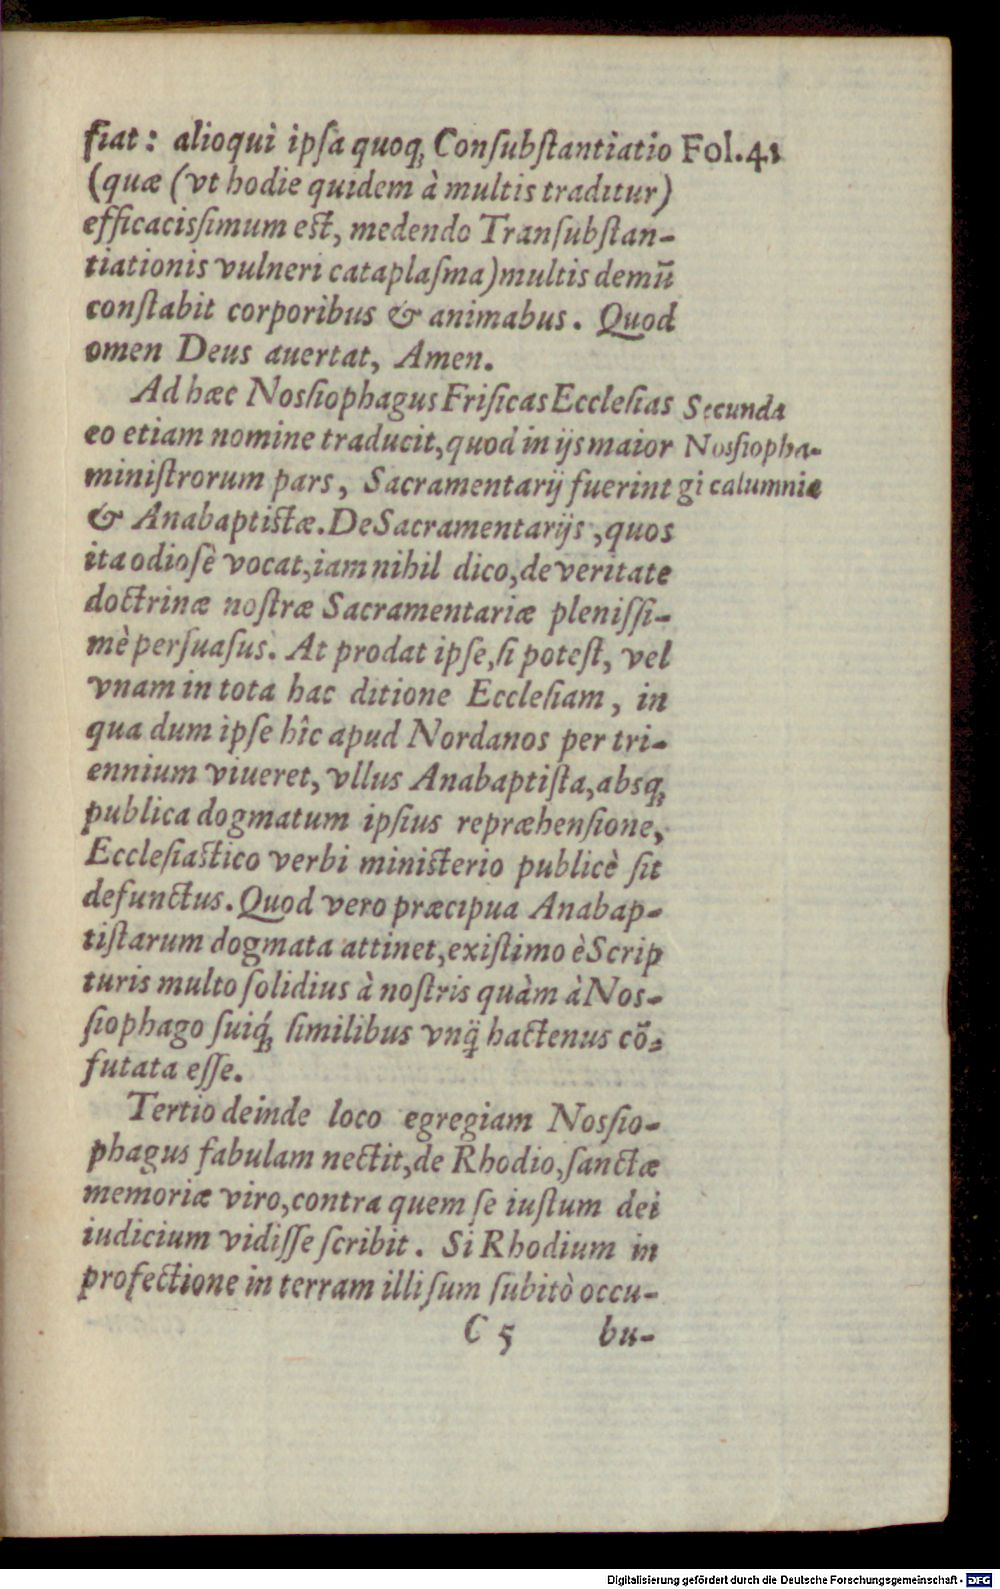 fiat: alioqui ipſa quoq; Conſubſtantiatio Fol. 41
(quæ (vt hodie quidem à multis traditur)
efficacisſimum est, medendo Tranſubſtan-
tiationis vulneri cataplaſma) multis demũ
conſtabit corporibus & animabus. Quod
omen Deus auertat, Amen.
Ad hæc Nosſiophagus Friſicas Eccleſias Secunda
eo etiam nomine traducit, quod in ijs maior Nosſiopha-
miniſtrorum pars, Sacramentarij fuerint gi calumnia
& Anabaptistæ. De Sacramentarijs, quos
ita odioſè vocat, iam nihil dico, de veritate
doctrinæ noſtræ Sacramentariæ pleniſſi-
mè perſuaſus. At prodat ipſe, ſi poteſt, vel
vnam in tota hac ditione Eccleſiam, in
qua dum ipſe hîc apud Nordanos per tri-
ennium viueret, vllus Anabaptiſta, absq;
publica dogmatum ipſius repræhenſione,
Eccleſiaſtico verbi miniſterio publicè ſit
defunctus. Quod vero præcipua Anabap-
tiſtarum dogmata attinet, exiſtimo è Scrip
turis multo ſolidius à noſtris quàm à Nos-
ſiophago ſuiq́; ſimilibus vnq̃ hactenus cõ-
futata eſſe.
Tertio deinde loco egregiam Nosſio-
phagus fabulam nectit, de Rhodio, ſanctæ
memoriæ viro, contra quem ſe iuſtum dei
iudicium vidiſſe ſcribit. Si Rhodium in
profectione in terram illiſum ſubitò occu-
C 5 bu-
Digitalisierung gefördert durch die Deutsche Forschungsgemeinschaft - DFG